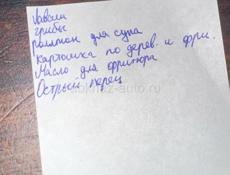 Лаваш
грибы
бульон для супа
картошка по дерев. и фри.
Масло для фритюра
Острый перец